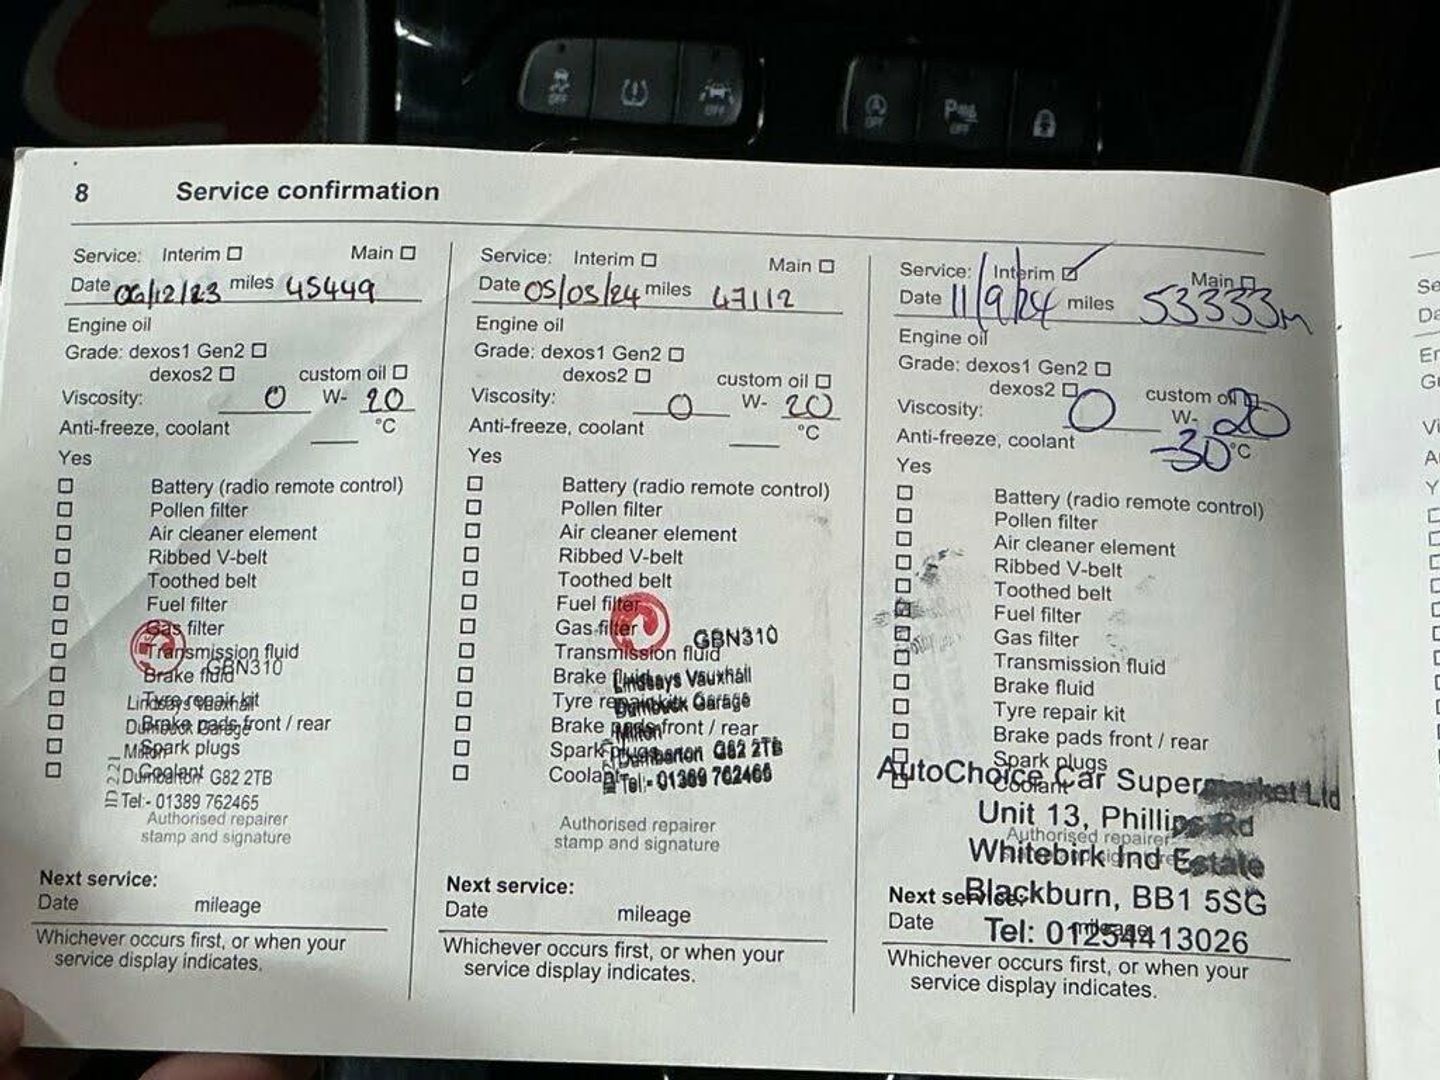 OFF
OFF
OFF
PAS
OFF
8 Service confirmation
Service: Interim Main
Date 06/12/23 miles 45449
Engine oil
Grade: dexos1 Gen2
dexos2 custom oil
Viscosity: 0 W- 20
Anti-freeze, coolant °C
Yes
Battery (radio remote control)
Pollen filter
Air cleaner element
Ribbed V-belt
Toothed belt
Fuel filter
Gas filter
Transmission fluid
Brake fluid
GBN310
Tyre repair kit
Lindsays Vauxhall
Brake pads front / rear
Dumbuck Garage
Spark plugs
Milton
Coolant
Dumbarton G82 2TB
Tel:- 01389 762465
Authorised repairer
stamp and signature
Next service:
Date mileage
Whichever occurs first, or when your
service display indicates.
Service: Interim Main
Date 05/03/24 miles 47112
Engine oil
Grade: dexos1 Gen2
dexos2 custom oil
Viscosity: 0 W- 20
Anti-freeze, coolant °C
Yes
Battery (radio remote control)
Pollen filter
Air cleaner element
Ribbed V-belt
Toothed belt
Fuel filter
Gas filter
GBN310
Transmission fluid
Brake fluid
Lindsays Vauxhall
Tyre repair kit
Dumbuck Garage
Brake pads front / rear
Milton
Spark plugs
Dumbarton G82 2TB
Coolant
Tel:- 01389 762465
Authorised repairer
stamp and signature
Next service:
Date mileage
Whichever occurs first, or when your
service display indicates.
Service: Interim Main
Date 11/9/24 miles 53333m
Engine oil
Grade: dexos1 Gen2
dexos2 custom oil
Viscosity: 0 W- 20
Anti-freeze, coolant -30 °C
Yes
Battery (radio remote control)
Pollen filter
Air cleaner element
Ribbed V-belt
Toothed belt
Fuel filter
Gas filter
Transmission fluid
Brake fluid
Tyre repair kit
Brake pads front / rear
Spark plugs
Coolant
AutoChoice Car Supermarket Ltd
Unit 13, Phillips Rd
Authorised repairer
Whitebirk Ind Estate
Next service:
Blackburn, BB1 5SG
Date mileage
Tel: 01254413026
Whichever occurs first, or when your
service display indicates.